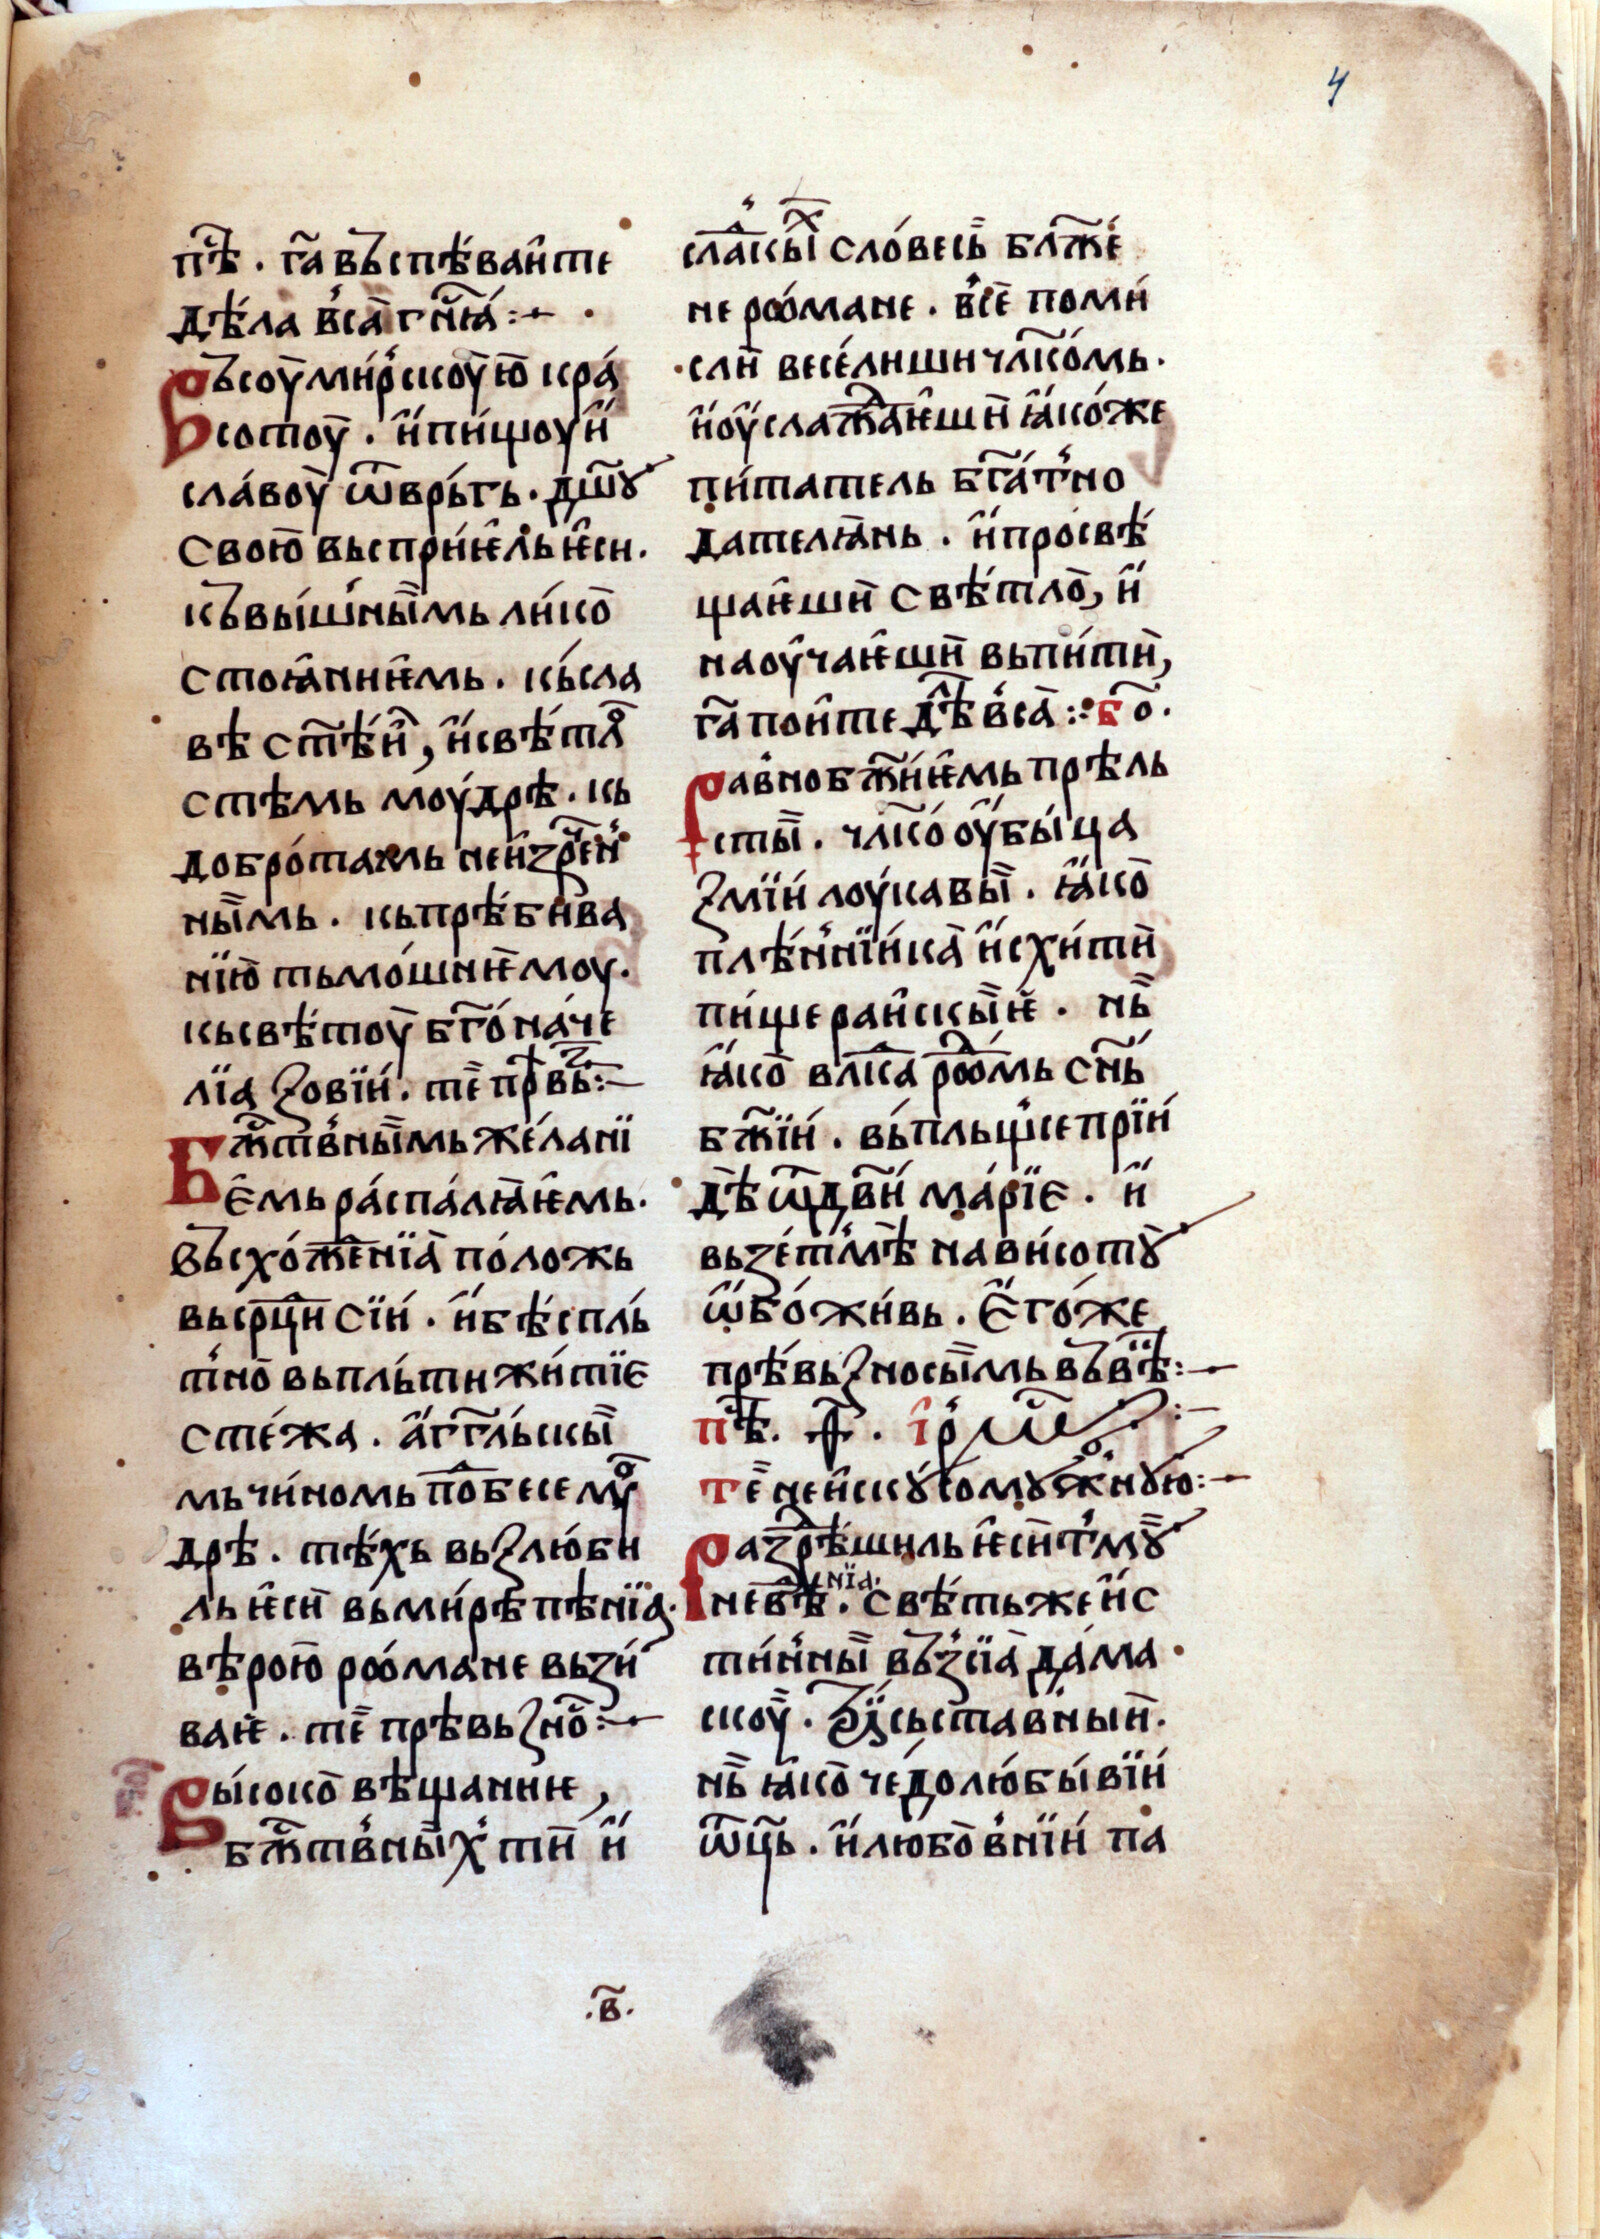 4
пѣ҃. га҃ въспѣ́ваи҆те
дѣ́ла в҆са̀ гн҃ꙗ҆́ :~
Въсоу̀ ми́р҆скоу́ю̀ кра́
сотоу̀. и҆ пи́щоу и҆
сла́воу̀ ѿврь́гь. дш҃ꙋ
свою̀ въспри́ѥ҆ль ѥ҆си.
къ вы́ш҆ны̏мь ли́ко̀
стоꙗ҆ниѥ҆мь. кь́ сла
вѣ ст҃ѣ́и҆, и҆ свѣ́тлⷪ
стѣмь моу́дрѣ. кь
добро́тамь неи҆зрⷱе́н҆
ны̏мь. кь прѣ́би́ва
нїю̀ тьмо́шниѥ҆моу.
кь свѣ́тоу̀ бг҃о́на́че
лїа ꙁовїи́. те̏ прⷺвьꙁ :~
Бжⷭ҇тв҆ны̏мь же́ланї
е҆мь ра́спа́лꙗ҆ѥ҆мь.
въсхо́жⷣе́нїа̀ по́ложь
вь срⷣци сїи́. и҆ бѣ́спль́
т҆но̀ вь пль́ти жи́тїе
сте́жа. а҆гг҃ль́скы̏
мь чи́номь поⷣбе се мꙋⷪ
дрѣ. тѣ́хь вьꙁлю́би
ль ѥ҆сѝ вь ми́рѣ пѣ́нїа.
вѣ́рою̀ рѡ́мане вьꙁи́
ваѥ̀. те̏ прѣ́вьꙁно̏ :~
Вы́соко̀ вѣ́щаниѥ,
бжⷭ҇тв҆ны̏х҆ тѝ и҆
слаⷣкы̏ⷯ сло́весь̏ бл҃же́
не рѡ́мане. в҆се̏ поми́
сли̏ весе́лиши чл҃ко́мь.
и҆ оу҆слажⷣаѥ҆шѝ ꙗ҆ко́же
пи́татель бг҃а́т҆но
дателꙗ҆нь. и҆ про́свѣ́
щаѥ҆шѝ свѣ́тло̀, и҆
наоу́чаѥ҆шѝ вьпи́тѝ,
га҃ пои҆те дⷧѣ́ в҆са̀ : бо҃.
Ра́в҆но бж҃ниѥ҆мь прѣ́ль
сты̏. чл҃ко́ оу҆бы́ца
ꙁмїи́ лоу́кавы̏. ꙗ҆ко̀
плѣ́н҆нїи́ка̀ и҆схи́тѝ
пи́ще раи҆скы̏ѥ̀. нь̏
ꙗ҆ко̀ влⷣка роⷣѡмь сн҃ь́
бж҃їи́. вь́пльщ҆се прїи́
дѣ̀ ѿ дв҃и́ ма́рїе. и҆
вьꙁе́т҆мѣ̀ на ви́сотꙋ̀
ѡ҆бо́жи́вь. е҆го́же
прѣ́вьꙁносы̏мь въ вⷦ҇ѣ̏ :~
пⷭ҇ѣ. ѳ҃. і҆р҆мѡⷭ :~
те̏ неи҆скꙋ́сомꙋⷤнꙋю :~
Раꙁрⷣѣ́шиль ѥ҆сѝ т҆мꙋ̏
невⷣѣнїа. свѣ́ть же и҆с
ти́н҆ны̏ въꙁ҆сїа̀ да́ма
скоу̏. ѱⷧ҇сьста́в҆ныѝ.
нь̏ ꙗ҆ко̀ че́до лю́бы́вїи́
ѿц҃ь. и҆ любо̀в҆нїи́ па
.в҃.